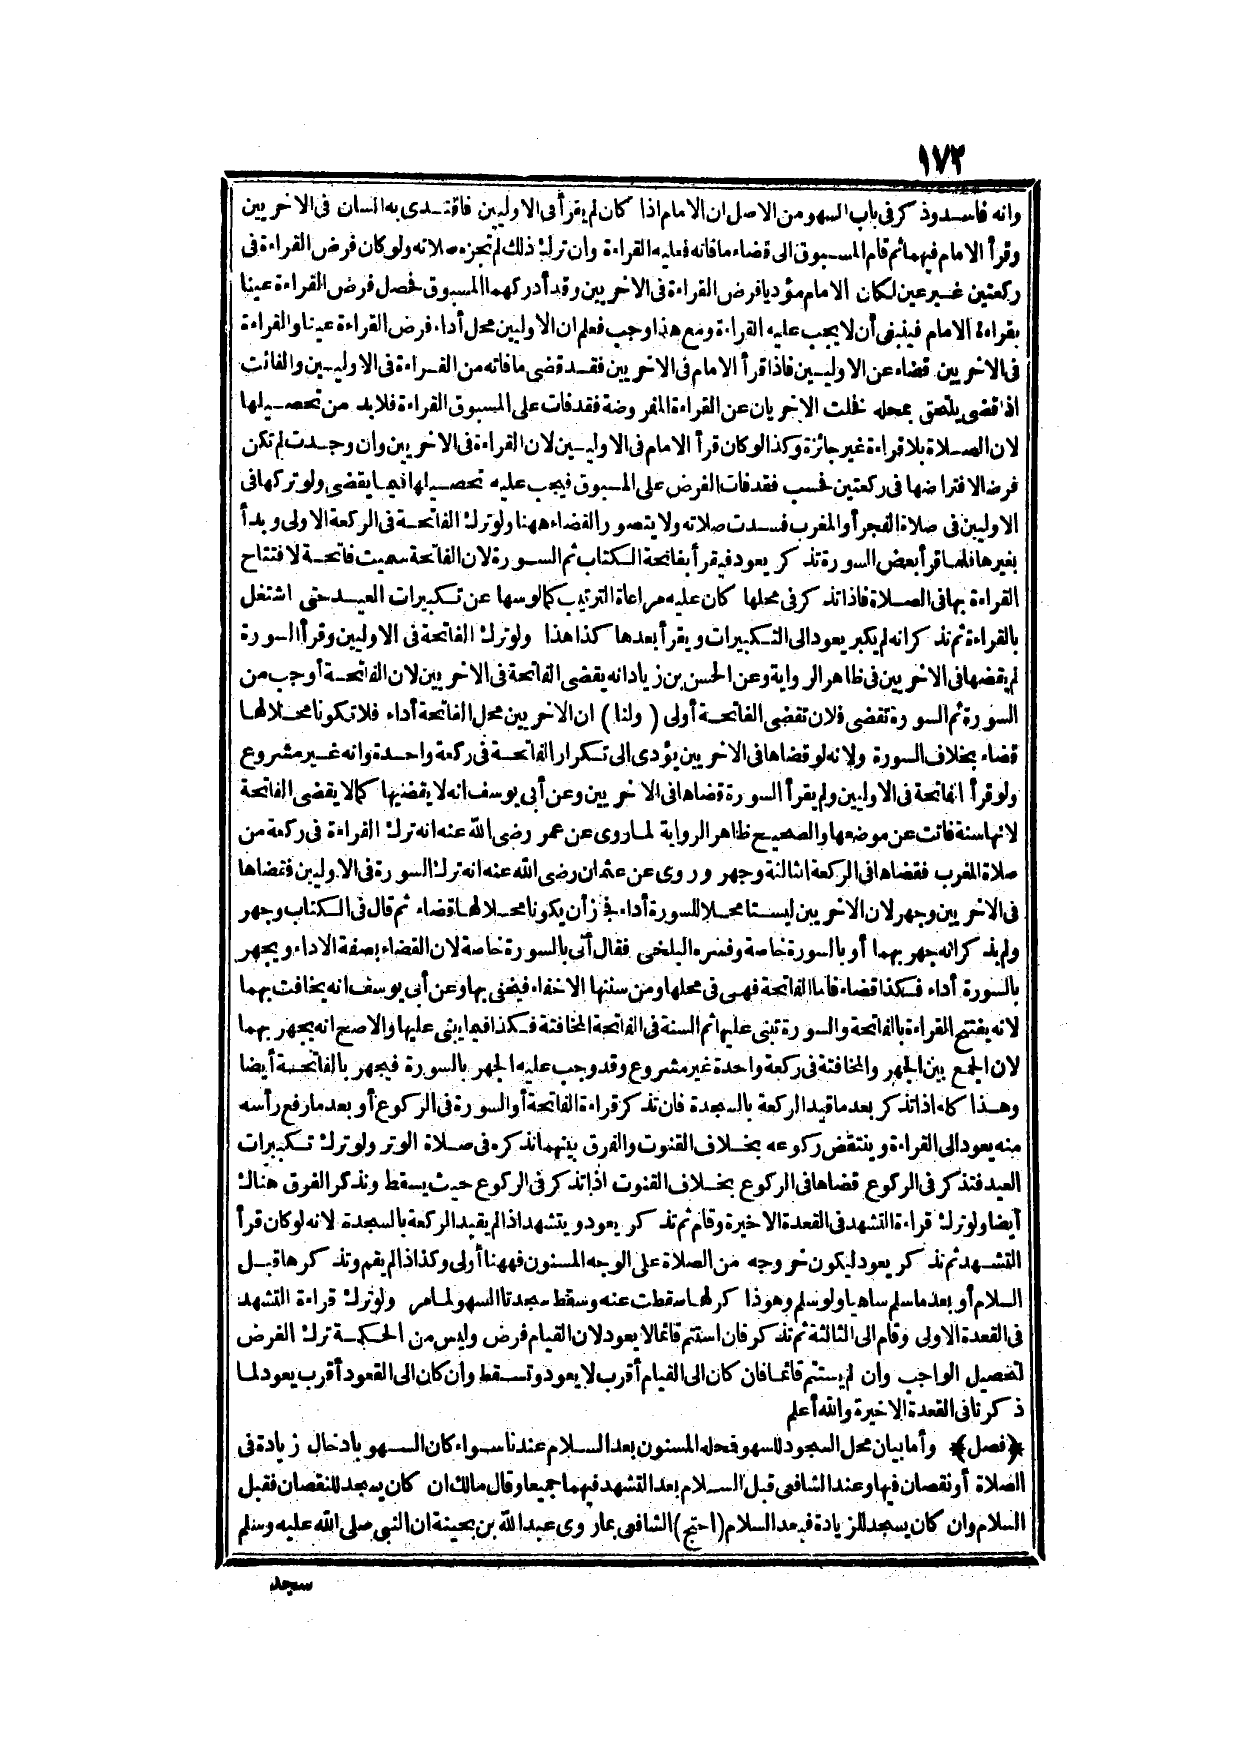 ١٧٢
وانه فاسد وذكر فى باب السهو من الاصل ان الامام اذا كان لم يقرأ فى الاوليين فاقتدى به انسان فى الاخريين
وقرأ الامام فيهما ثم قام المسبوق الى قضاء ما فاته فعليه القراءة وان ترك ذلك لم تجزه صلاته ولو كان فرض القراءة فى
ركعتين غير عين لكان الامام مؤديا فرض القراءة فى الاخريين وقد أدركهما المسبوق فحصل فرض القراءة عينا
بقراءة الامام فينبغى أن لا يجب عليه القراءة ومع هذا وجب فعلم ان الاوليين محل أداء فرض القراءة عينا والقراءة
فى الاخريين قضاء عن الاوليين فاذا قرأ الامام فى الاخريين فقد قضى ما فاته من القراءة فى الاوليين والفائت
اذا قضى يلتحق بمحله فخلت الاخريان عن القراءة المفروضة فقد فات على المسبوق القراءة فلا بد من تحصيلها
لان الصلاة بلا قراءة غير جائزة وكذا لو كان قرأ الامام فى الاوليين لان القراءة فى الاخريين وان وجدت لم تكن
فرضا لافتراضها فى ركعتين فحسب فقد فات الفرض على المسبوق فيجب عليه تحصيلها فيما يقضى ولو تركها فى
الاوليين فى صلاة الفجر أو المغرب فسدت صلاته ولا يتصور القضاء ههنا ولو ترك الفاتحة فى الركعة الاولى وبدأ
بغيرها فلما قرأ بعض السورة تذكر يعود فيقرأ بفاتحة الكتاب ثم السورة لان الفاتحة سميت فاتحة لافتتاح
القراءة بها فى الصلاة فاذا تذكر فى محلها كان عليه مراعاة الترتيب كما لو سها عن تكبيرات العيد حتى اشتغل
بالقراءة ثم تذكر انه لم يكبر يعود الى التكبيرات ويقرأ بعدها كذا هذا ولو ترك الفاتحة فى الاوليين وقرأ السورة
لم يقضها فى الاخريين فى ظاهر الرواية وعن الحسن بن زياد انه يقضى الفاتحة فى الاخريين لان الفاتحة أوجب من
السورة ثم السورة تقضى فلان تقضى الفاتحة أولى (ولنا) ان الاخريين محل الفاتحة أداء فلا تكونا محلا لها
قضاء بخلاف السورة ولانه لو قضاها فى الاخريين يؤدى الى تكرار الفاتحة فى ركعة واحدة وانه غير مشروع
ولو قرأ الفاتحة فى الاوليين ولم يقرأ السورة قضاها فى الاخريين وعن أبى يوسف انه لا يقضيها كما لا يقضى الفاتحة
لانها سنة فاتت عن موضعها والصحيح ظاهر الرواية لما روى عن عمر رضى الله عنه انه ترك القراءة فى ركعة من
صلاة المغرب فقضاها فى الركعة الثالثة وجهر وروى عن عثمان رضى الله عنه انه ترك السورة فى الاوليين فقضاها
فى الاخريين وجهر لان الاخريين ليستا محلا للسورة أداء فجاز أن يكونا محلا لها قضاء ثم قال فى الكتاب وجهر
ولم يذكر انه جهر بهما أو بالسورة خاصة وفسره البلخى فقال أتى بالسورة خاصة لان القضاء بصفة الاداء ويجهر
بالسورة أداء فكذا قضاء فاما الفاتحة فهى فى محلها ومن سنتها الاخفاء فيخفى بها وعن أبى يوسف انه يخافت بهما
لانه يفتتح القراءة بالفاتحة والسورة تبنى عليها ثم السنة فى الفاتحة المخافتة فكذا فيما يبنى عليها والاصح انه يجهر بهما
لان الجمع بين الجهر والمخافتة فى ركعة واحدة غير مشروع وقد وجب عليه الجهر بالسورة فيجهر بالفاتحة أيضا
وهذا كله اذا تذكر بعد ما قيد الركعة بالسجدة فان تذكر قراءة الفاتحة أو السورة فى الركوع أو بعد ما رفع رأسه
منه يعود الى القراءة وينتقض ركوعه بخلاف القنوت والفرق بينهما نذكره فى صلاة الوتر ولو ترك تكبيرات
العيد فتذكر فى الركوع قضاها فى الركوع بخلاف القنوت اذا تذكر فى الركوع حيث يسقط ونذكر الفرق هناك
أيضا ولو ترك قراءة التشهد فى القعدة الاخيرة وقام ثم تذكر يعود ويتشهد اذا لم يقيد الركعة بالسجدة لانه لو كان قرأ
التشهد ثم تذكر يعود ليكون خروجه من الصلاة على الوجه المسنون فههنا أولى وكذا اذا لم يقم وتذكرها قبل
السلام أو بعد ما سلم ساهيا ولو سلم وهو ذاكر لها سقطت عنه وسقط سجدتا السهو لما مر ولو ترك قراءة التشهد
فى القعدة الاولى وقام الى الثالثة ثم تذكر فان استتم قائما لا يعود لان القيام فرض وليس من الحكمة ترك الفرض
لتحصيل الواجب وان لم يستتم قائما فان كان الى القيام أقرب لا يعود وتسقط وان كان الى القعود أقرب يعود لما
ذكرنا فى القعدة الاخيرة والله أعلم
﴿فصل﴾ وأما بيان محل السجود للسهو فمحله المسنون بعد السلام عندنا سواء كان السهو بادخال زيادة فى
الصلاة أو نقصان فيها وعند الشافعى قبل السلام بعد التشهد فيهما جميعا وقال مالك ان كان يسجد للنقصان فقبل
السلام وان كان يسجد للزيادة فبعد السلام (احتج) الشافعى بما روى عبد الله بن بحينة ان النبى صلى الله عليه وسلم
سجد